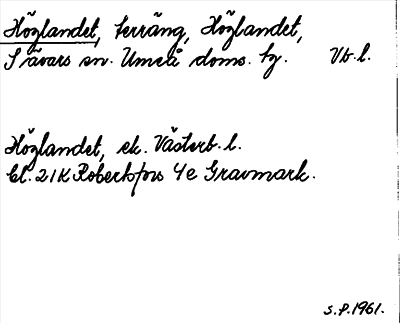 Höglandet, terräng, Höglandet,
Sävars sn. Umeå doms. tg. Vb. l.
Höglandet, ek. Västerb. l.
bl. 21K Robertsfors 4e Gravmark.
S.P. 1961.